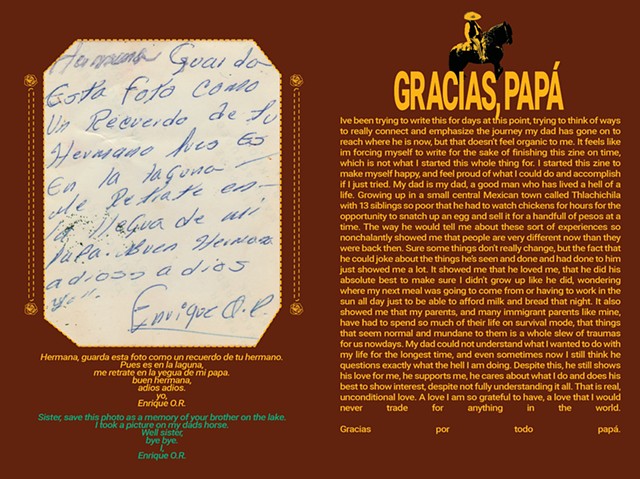 Hermana Guarda
Esta Foto Como
Un Recuerdo de tu
Hermano Pues Es
En la laguna
Me Retrate en
la llegua de mi
Papa. Buen Hermana
adioss adios
yo..
Enrique O.R.
Hermana, guarda esta foto como un recuerdo de tu hermano.
Pues es en la laguna,
me retrate en la yegua de mi papa.
buen hermana,
adios adios.
yo,
Enrique O.R.
Sister, save this photo as a memory of your brother on the lake.
I took a picture on my dads horse.
Well sister,
bye bye.
I,
Enrique O.R.
GRACIAS, PAPÁ
Ive been trying to write this for days at this point, trying to think of ways
to really connect and emphasize the journey my dad has gone on to
reach where he is now, but that doesn't feel organic to me. It feels like
im forcing myself to write for the sake of finishing this zine on time,
which is not what I started this whole thing for. I started this zine to
make myself happy, and feel proud of what I could do and accomplish
if I just tried. My dad is my dad, a good man who has lived a hell of a
life. Growing up in a small central Mexican town called Tlhachichila
with 13 siblings so poor that he had to watch chickens for hours for the
opportunity to snatch up an egg and sell it for a handfull of pesos at a
time. The way he would tell me about these sort of experiences so
nonchalantly showed me that people are very different now than they
were back then. Sure some things don't really change, but the fact that
he could joke about the things he's seen and done and had done to him
just showed me a lot. It showed me that he loved me, that he did his
absolute best to make sure I didn't grow up like he did, wondering
where my next meal was going to come from or having to work in the
sun all day just to be able to afford milk and bread that night. It also
showed me that my parents, and many immigrant parents like mine,
have had to spend so much of their life on survival mode, that things
that seem normal and mundane to them is a whole slew of traumas
for us nowadays. My dad could not understand what I wanted to do with
my life for the longest time, and even sometimes now I still think he
questions exactly what the hell I am doing. Despite this, he still shows
his love for me, he supports me, he cares about what I do and does his
best to show interest, despite not fully understanding it all. That is real,
unconditional love. A love I am so grateful to have, a love that I would
never trade for anything in the world.
Gracias por todo papá.